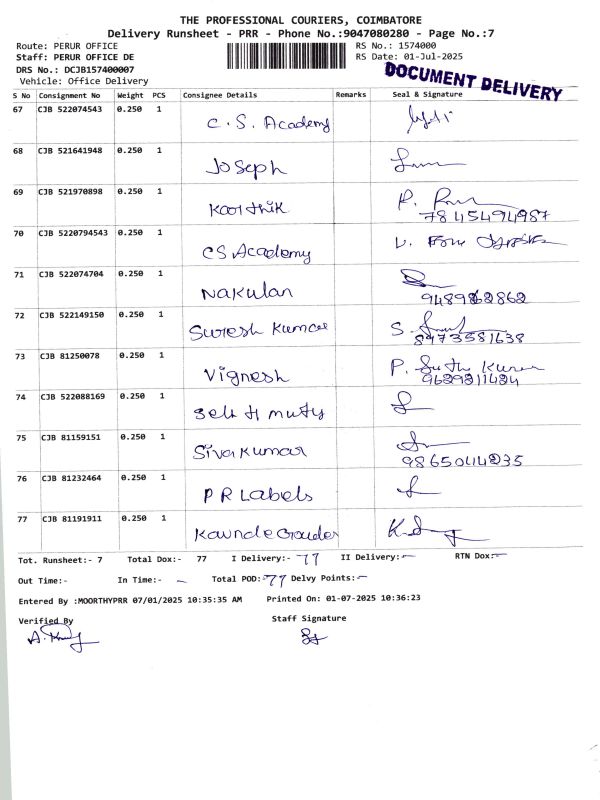 THE PROFESSIONAL COURIERS, COIMBATORE
Delivery Runsheet - PRR - Phone No.:9047080280 - Page No.:7
Route: PERUR OFFICE RS No.: 1574000
Staff: PERUR OFFICE DE RS Date: 01-Jul-2025
DRS No.: DCJB157400007
Vehicle: Office Delivery
DOCUMENT DELIVERY
S No Consignment No Weight PCS Consignee Details Remarks Seal & Signature
67 CJB 522074543 0.250 1 C.S. Academy
68 CJB 521641948 0.250 1 Joseph
69 CJB 521970898 0.250 1 Karthik
7845494987
70 CJB 5220794543 0.250 1 CS Academy
71 CJB 522074704 0.250 1 Nakulan
72 CJB 522149150 0.250 1 Suresh Kumar
8973581638
73 CJB 81250078 0.250 1 Vignesh
P.
9629211424
74 CJB 522088169 0.250 1
75 CJB 81159151 0.250 1 Siva Kumar
9865044235
76 CJB 81232464 0.250 1 PR Labels
77 CJB 81191911 0.250 1
Tot. Runsheet:- 7 Total Dox:- 77 I Delivery:- 77 II Delivery:- RTN Dox:-
Out Time:- In Time:- Total POD:- 77 Delvy Points:-
Entered By :MOORTHYPRR 07/01/2025 10:35:35 AM Printed On: 01-07-2025 10:36:23
Verified By Staff Signature